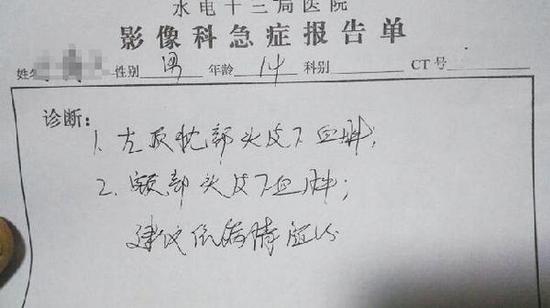 水电十三局医院
影像科急症报告单
姓名 性别 男 年龄 14 科别 CT号
诊断：
1. 左顶枕部头皮下血肿，
2. 额部头皮下血肿；
建议依病情